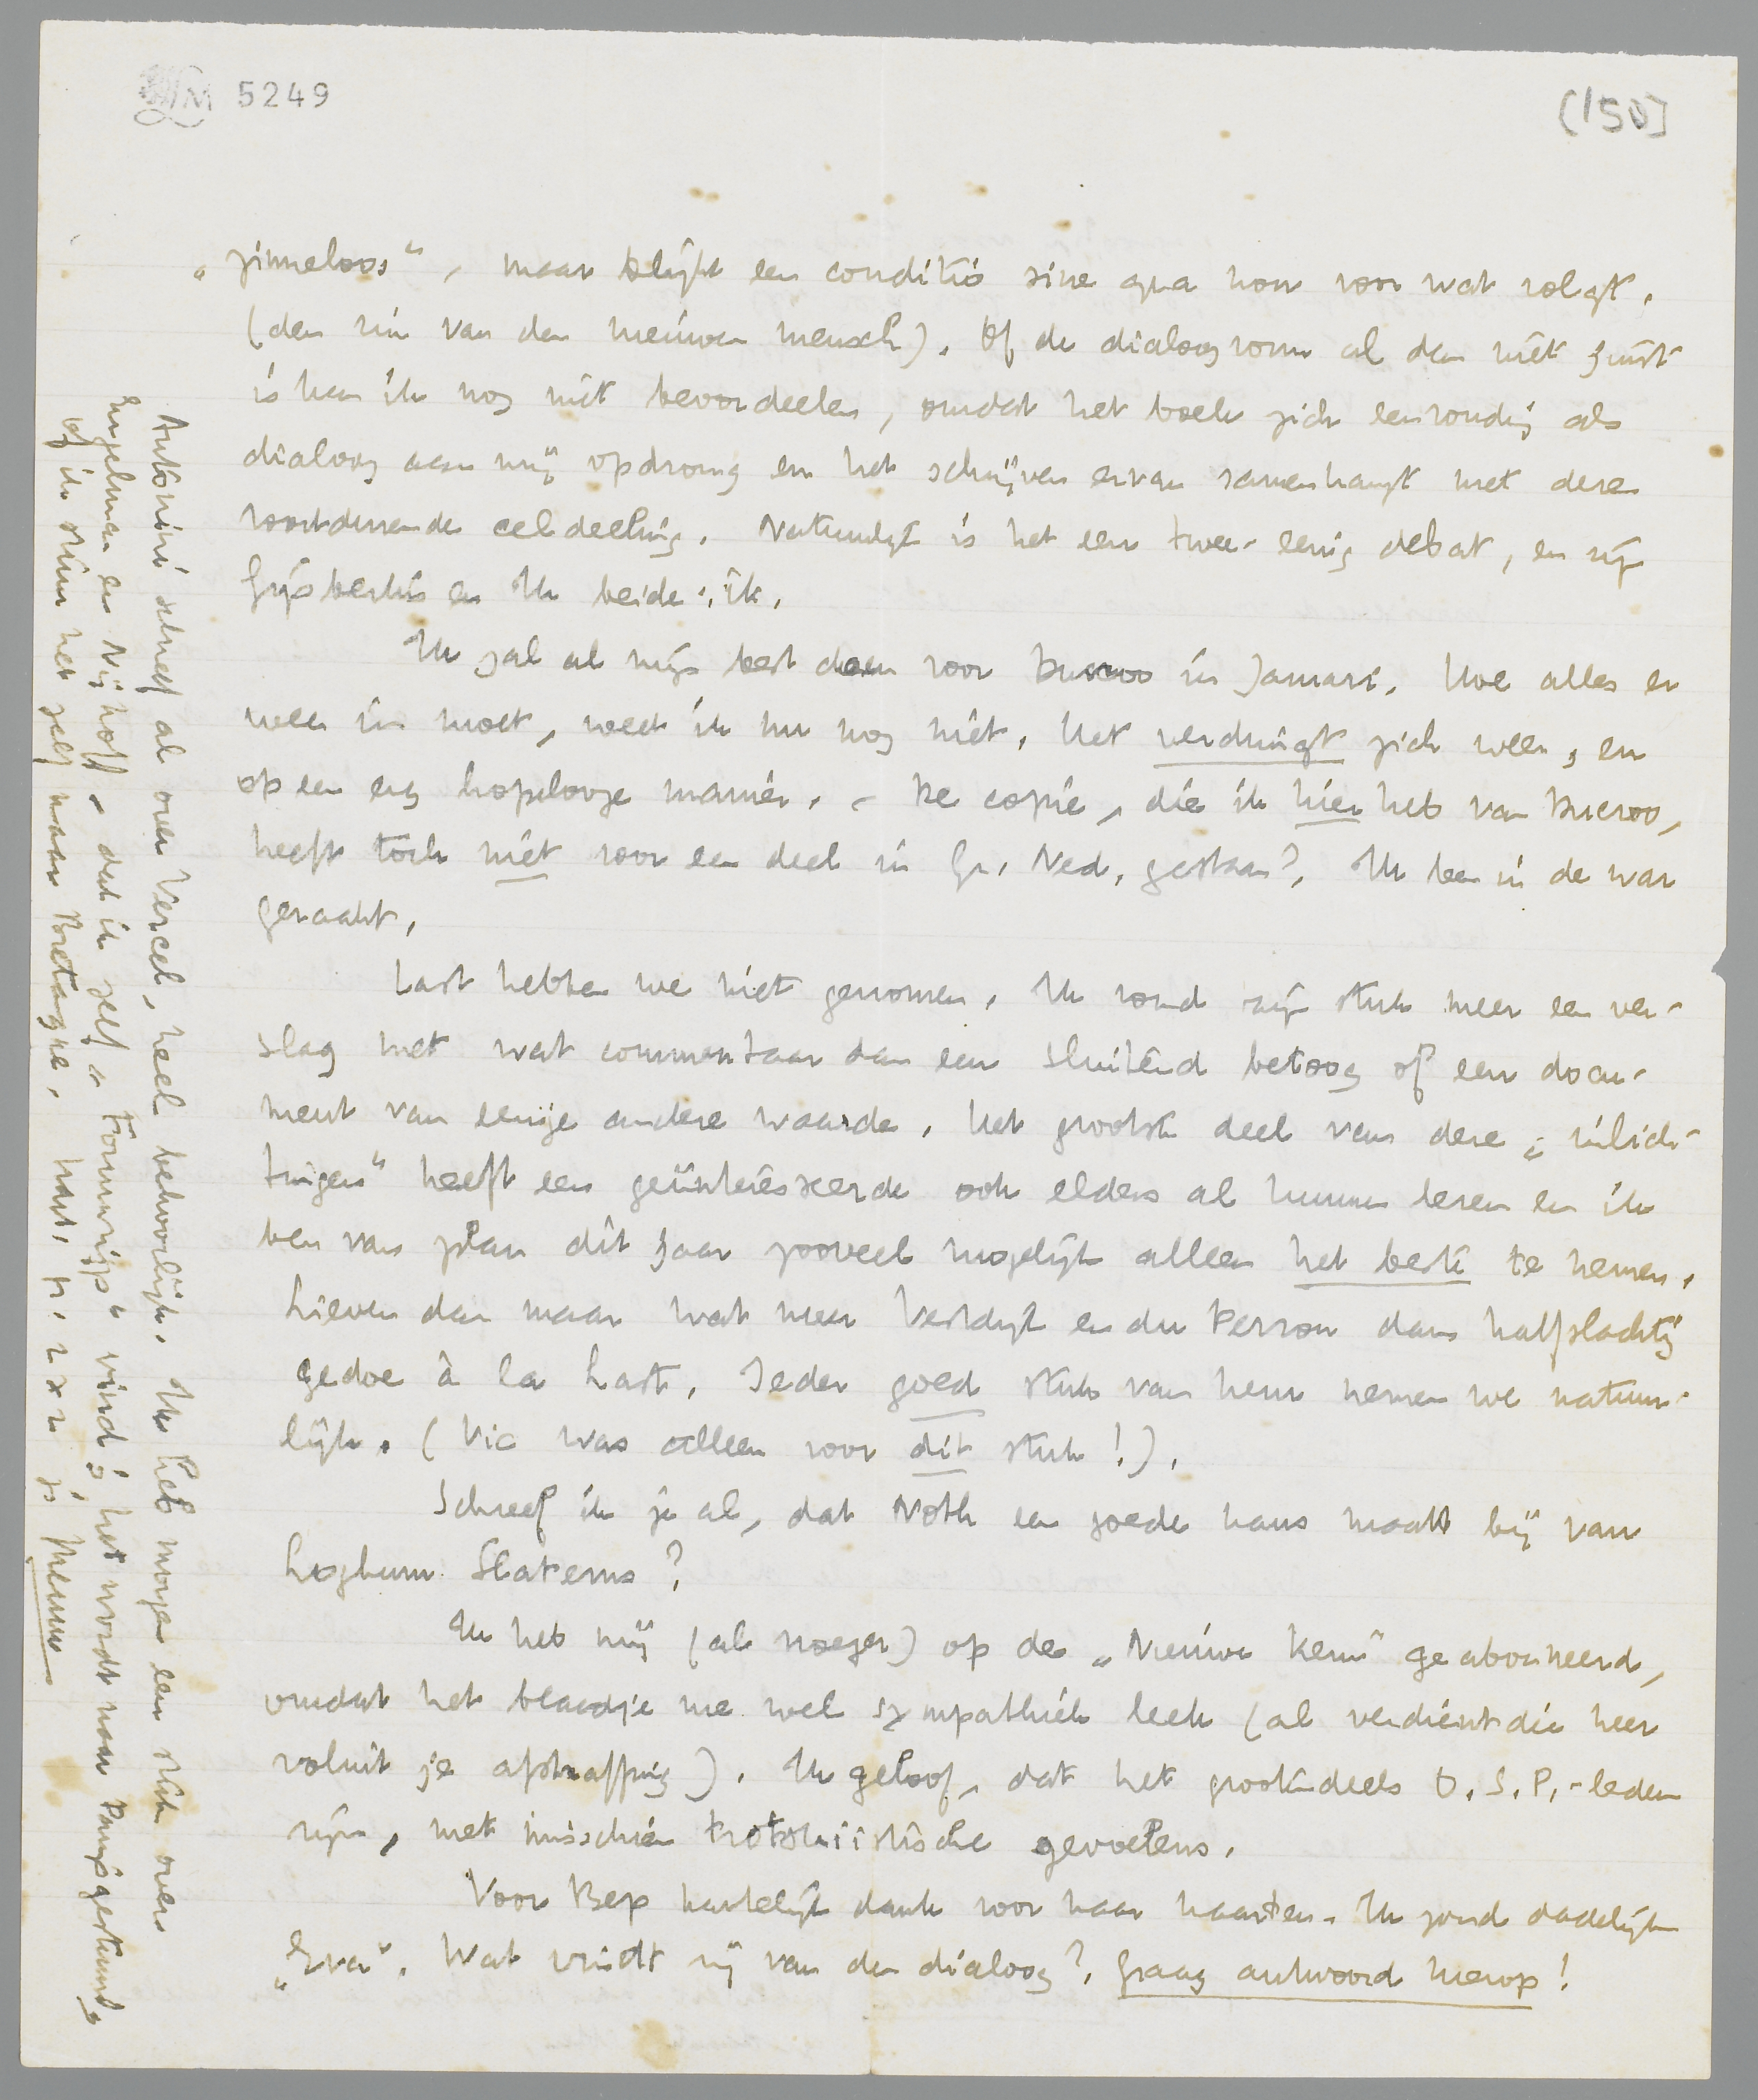 LM 5249
(150]
„zinneloos", maar blijft een conditio sine qua non voor wat volgt.
(den zin van den nieuwen mensch). Of de dialoogvorm al dan niet juist
is kan ik nog niet beoordeelen, omdat het boek zich eenvoudig als
dialoog aan mij opdrong en het schrijven ervan samenhangt met deze
voortdurende celdeeling. Natuurlijk is het een twee-eenig debat, en zijn
Gijsbertus en Ik beide: ik.
Ik zal al mijn best doen voor Ducroo in Januari. Hoe alles er
weer in moet, weet ik nu nog niet. Het verdringt zich weer, en
op een erg hopelooze manier. – De copie, die ik hier heb van Ducroo,
heeft toch niet voor een deel in Gr. Ned. gestaan? Ik ben in de war
geraakt.
Last hebben we niet genomen. Ik vond zijn stuk meer een ver-
slag met wat commentaar dan een sluitend betoog of een docu-
ment van eenige andere waarde. Het grootste deel van deze „inlich-
tingen" heeft een geïnteresseerde ook elders al kunnen lezen en ik
ben van plan dit jaar zooveel mogelijk alleen het beste te nemen.
Liever dan maar wat meer Vestdijk en du Perron dan halfslachtig
gedoe à la Last. Ieder goed stuk van hem nemen we natuur-
lijk. (Vic was alleen voor dit stuk!).
Schreef ik je al, dat Noth een goede kans maakt bij van
Loghum Slaterus?
Ik heb mij (al vroeger) op de „Nieuwe Kern" geabonneerd,
omdat het blaadje me wel sympathiek leek (al verdient die heer
voluit je afstraffing). Ik geloof, dat het grootendeels O.S.P.-leden
zijn, met misschien trotskiistische gevoelens.
Voor Bep hartelijk dank voor haar kaarten. Ik zond dadelijk
„Eva". Wat vindt zij van den dialoog? Graag antwoord hierop!
Antonini schreef al over Vercel, heel behoorlijk. Ik heb morgen een stuk over
Engelman en Nijhoff, dat ik zelf „Forumrijp" vind; het wordt naar Parijs gestuurd,
of ik stuur het zelf naar Bretagne. hart. gr. 2 x 2 je Menno